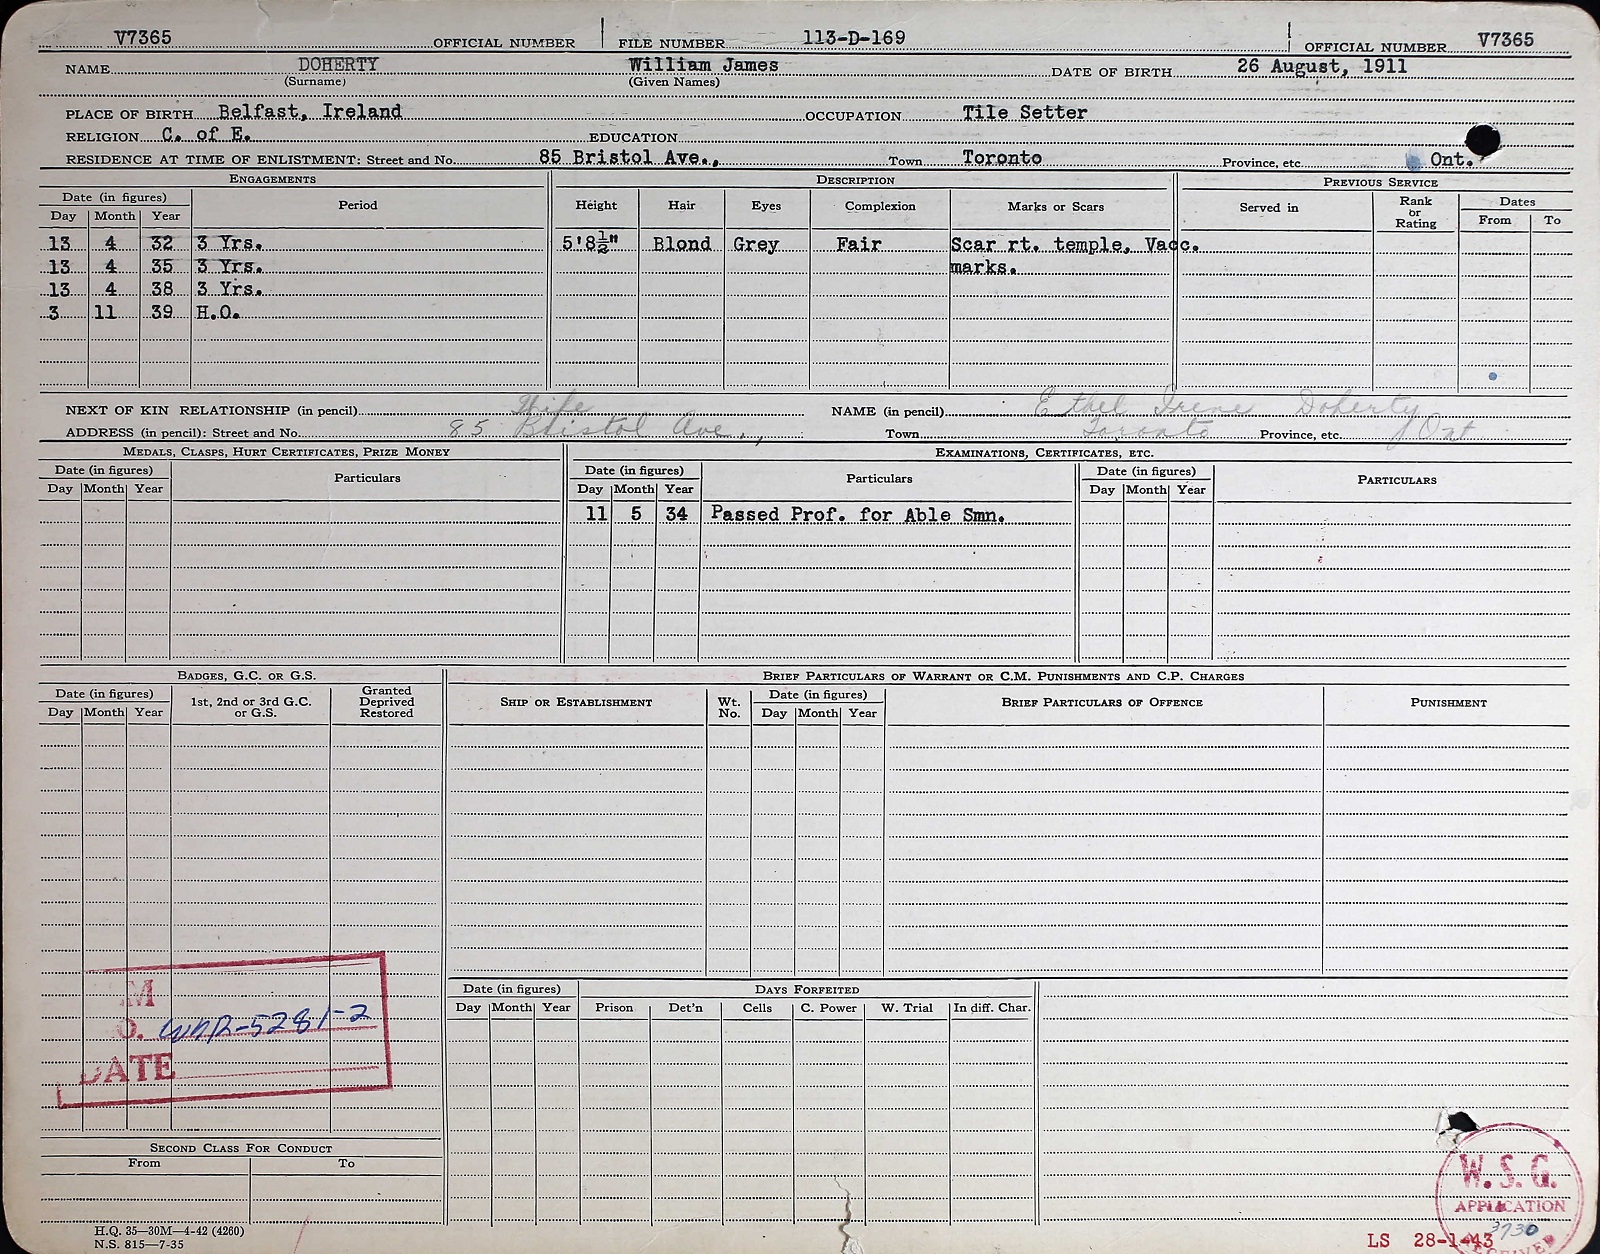 V7365 OFFICIAL NUMBER FILE NUMBER 113-D-169 OFFICIAL NUMBER V7365
NAME DOHERTY William James DATE OF BIRTH 26 August, 1911
(Surname) (Given Names)
PLACE OF BIRTH Belfast, Ireland OCCUPATION Tile Setter
RELIGION C. of E. EDUCATION
RESIDENCE AT TIME OF ENLISTMENT: Street and No. 85 Bristol Ave., Town Toronto Province, etc. Ont.
ENGAGEMENTS DESCRIPTION PREVIOUS SERVICE
Date (in figures) Period Height Hair Eyes Complexion Marks or Scars Served in Rank or Rating Dates
Day Month Year From To
13 4 32 3 Yrs. 5'8½" Blond Grey Fair Scar rt. temple, Vacc.
13 4 35 3 Yrs. marks.
13 4 38 3 Yrs.
3 11 39 H.O.
NEXT OF KIN RELATIONSHIP (in pencil) Wife NAME (in pencil) Ethel Irene Doherty
ADDRESS (in pencil): Street and No. 85 Bristol Ave., Town Toronto Province, etc. Ont
MEDALS, CLASPS, HURT CERTIFICATES, PRIZE MONEY EXAMINATIONS, CERTIFICATES, ETC.
Date (in figures) Particulars Date (in figures) Particulars Date (in figures) PARTICULARS
Day Month Year Day Month Year Day Month Year
11 5 34 Passed Prof. for Able Smn.
BADGES, G.C. OR G.S. BRIEF PARTICULARS OF WARRANT OR C.M. PUNISHMENTS AND C.P. CHARGES
Date (in figures) 1st, 2nd or 3rd G.C. or G.S. Granted Deprived Restored SHIP OR ESTABLISHMENT Wt. No. Date (in figures) BRIEF PARTICULARS OF OFFENCE PUNISHMENT
Day Month Year Day Month Year
M
O. WNR-5281-2
DATE
Date (in figures) DAYS FORFEITED
Day Month Year Prison Det'n Cells C. Power W. Trial In diff. Char.
SECOND CLASS FOR CONDUCT
From To
W.S.G.
APPLICATION
3730
RECEIVED
H.Q. 35—30M—4-42 (4260)
N.S. 815—7-35
LS 28-1-43